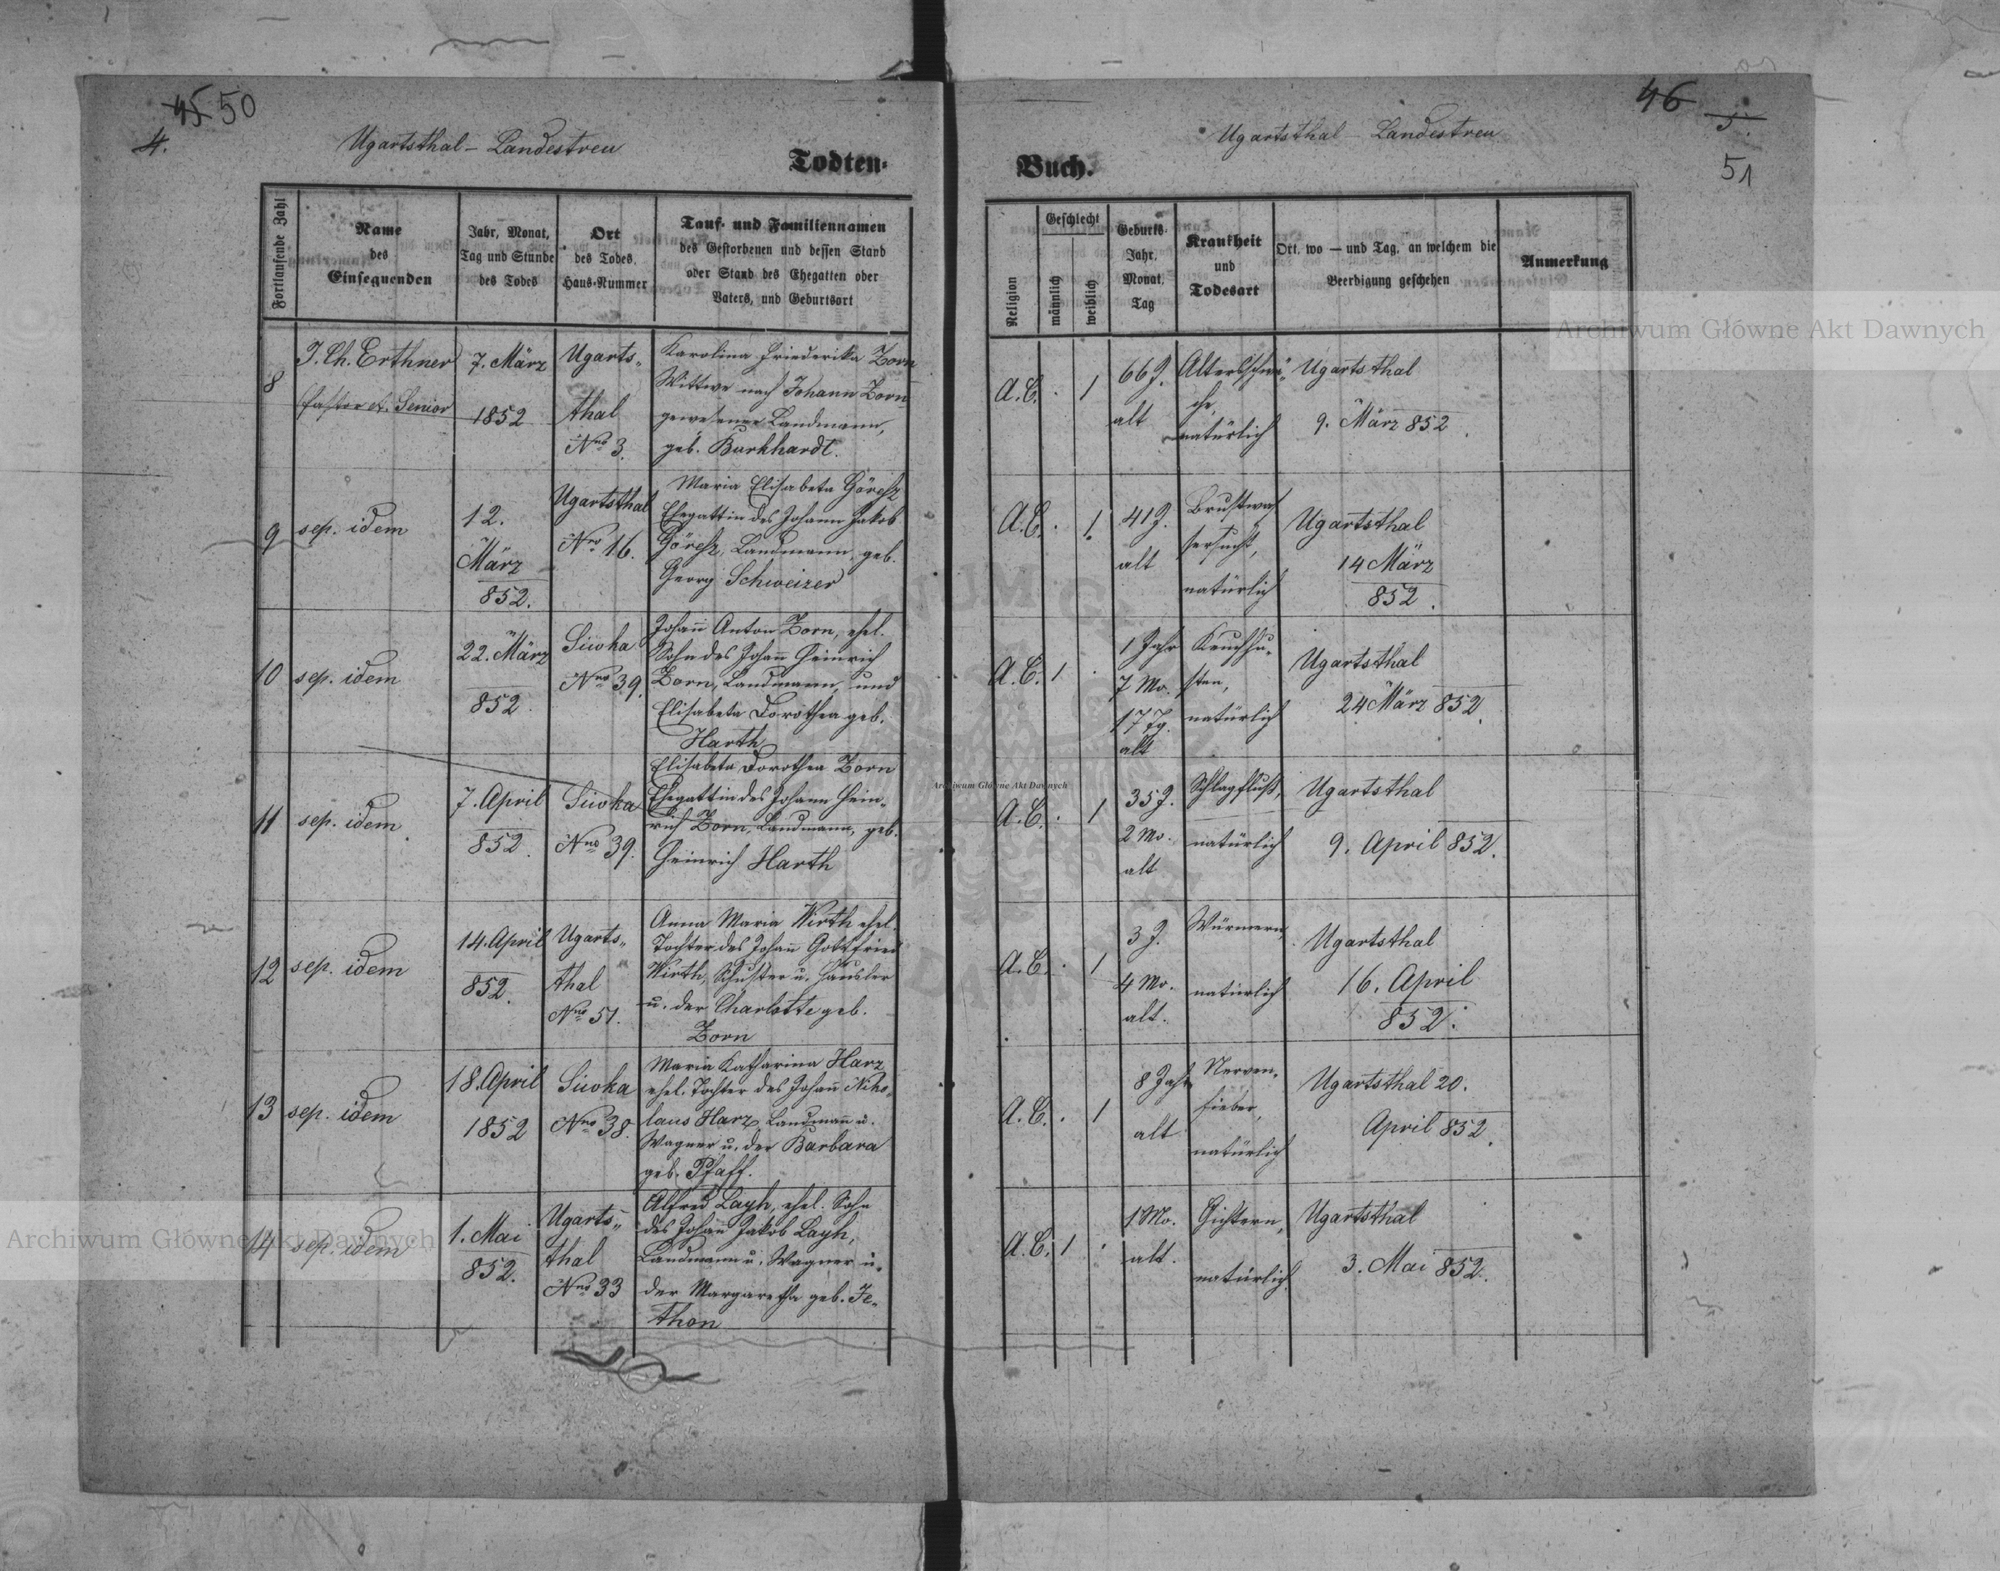 45 50
4.
Ugartsthal - Landestreu
Todten-
Fortlaufende Zahl
Name
des
Einsegnenden
Jahr, Monat,
Tag und Stunde
des Todes
Ort
des Todes,
Haus-Nummer
Tauf- und Familiennamen
des Gestorbenen und dessen Stand
oder Stand des Ehegatten oder
Vaters, und Geburtsort
8
J. Ch. Erthner
Pastor et. Senior
7. März
1852
Ugarts-
thal
Nro 3.
Karolina Friederika Zorn
Wittwe nach Johann Zorn
gewesener Landmann,
geb. Burkhardt.
9
sep. idem
12.
März
852.
Ugartsthal
Nro 16.
Maria Elisabeta Göresz
Ehegattin des Johann Jakob
Göresz, Landmann, geb.
Georg Schweizer
10
sep. idem
22. März
852.
Siwka
Nro 39.
Johañ Anton Zorn, ehel.
Sohn des Johañ Heinrich
Zorn, Landmann, und
Elisabeta Dorothea geb.
Harth
11
sep. idem.
7. April
852.
Siwka
Nro 39.
Elisabeta Dorothea Zorn
Ehegattin des Johann Hein-
rich Zorn, Landmann, geb.
Heinrich Harth
12
sep. idem
14. April
852.
Ugarts-
thal
Nro 51.
Anna Maria Wirth ehel.
Tochter des Johañ Gottfried
Wirth, Schuster u. Häusler
u. der Charlotte geb.
Zorn
13
sep. idem
18. April
1852
Siwka
Nro 38.
Maria Katharina Harz
ehel. Tochter des Johañ Niko-
laus Harz, Landmañ u.
Wagner u. der Barbara
geb. Pfaff.
14
sep. idem
1. Mai
852.
Ugarts-
thal
Nro 33
Alfred Layh, ehel. Sohn
des Johañ Jakob Layh,
Landmann u. Wagner u.
der Margaretha geb. Je-
thon
46
5.
51
Ugartsthal - Landestreu
Buch.
Religion
Geschlecht
männlich
weiblich
Geburts-
Jahr,
Monat,
Tag
Krankheit
und
Todesart
Ort, wo — und Tag, an welchem die
Beerdigung geschehen
Anmerkung
A.C. . 1
66 J.
alt
Altersschwä-
che,
natürlich
Ugartsthal
9. März 852.
A.C. . 1.
41 J.
alt
Brustwas
sersucht,
natürlich
Ugartsthal
14 März
852.
A.C. 1 .
1 Jahr
7 Mo.
17 Tg.
alt
Keuchhu-
sten,
natürlich
Ugartsthal
24 März 852.
A.C. . 1
35 J.
2 Mo.
alt
Schlagfluß,
natürlich
Ugartsthal
9. April 852.
A.C. . 1
3 J.
4 Mo.
alt.
Würmern,
natürlich
Ugartsthal
16. April
852.
A.C. . 1
8 Jahr
alt
Nerven-
fieber,
natürlich
Ugartsthal 20.
April 852.
A.C. 1 .
1 Mo.
alt.
Gichtern,
natürlich
Ugartsthal
3. Mai 852.
Archiwum Główne Akt Dawnych
Archiwum Główne Akt Dawnych
Archiwum Główne Akt Dawnych